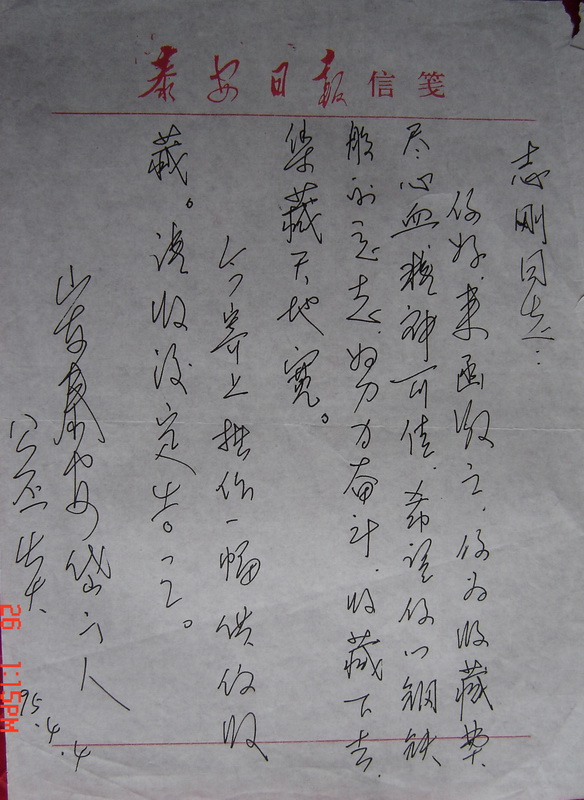 泰安日报信笺
志刚同志：
你好，来函敬之，你为收藏费
尽心血，精神可佳，希望你以钢铁
般的意志，努力奋斗，收藏下去，
集藏天地宽。
今寄上拙作一幅供你收
藏。请收后定告。
山东泰安岱下人
95.4.4
26 1:15PM